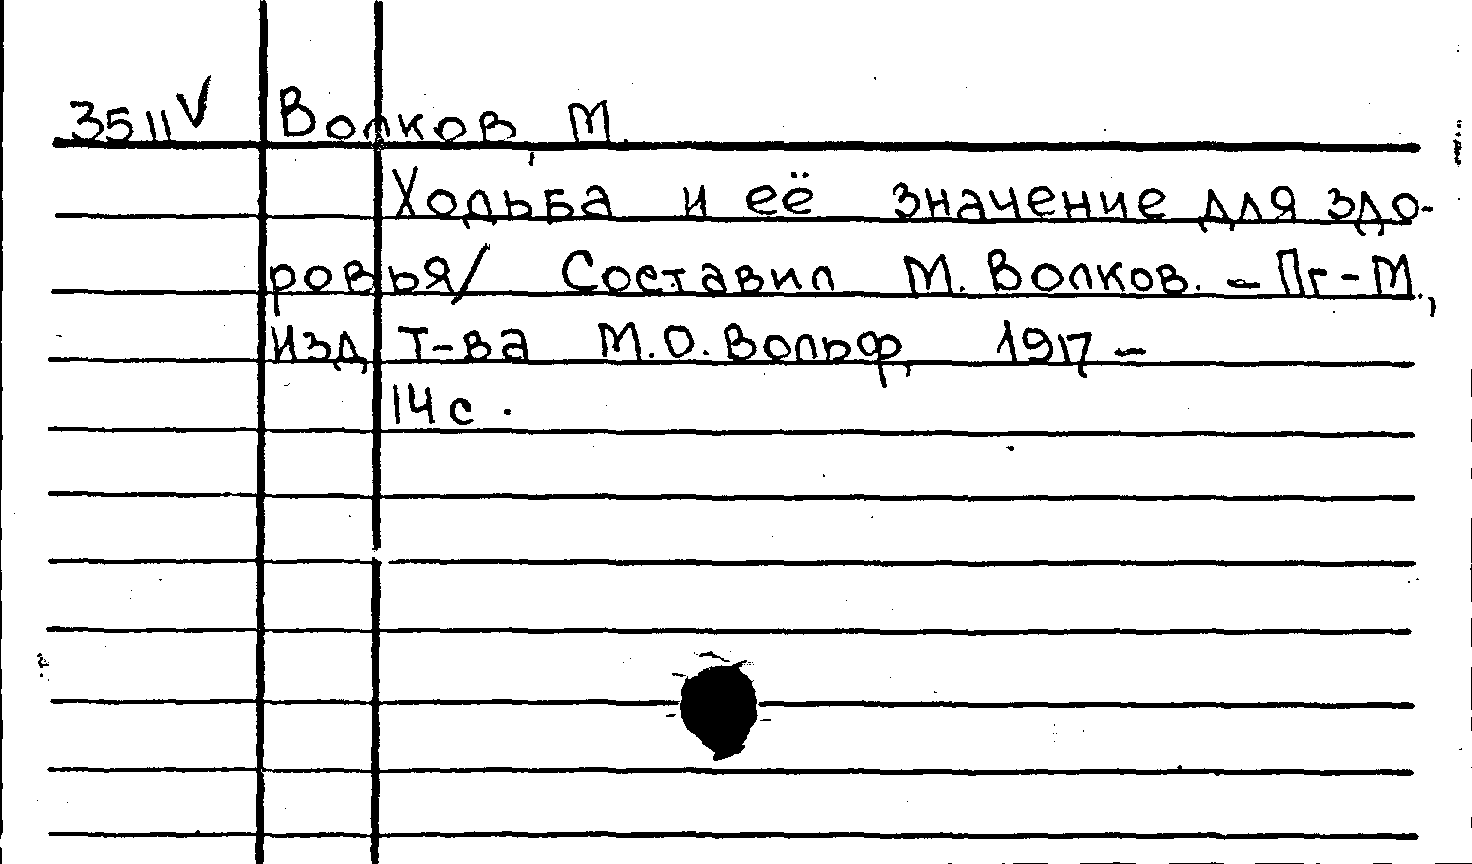 3511 V Волков, М.
Ходьба и её значение для здо-
ровья/ Составил М. Волков. – Пг-М.,
изд. т-ва М.О. Вольф, 1917 –
14 с.